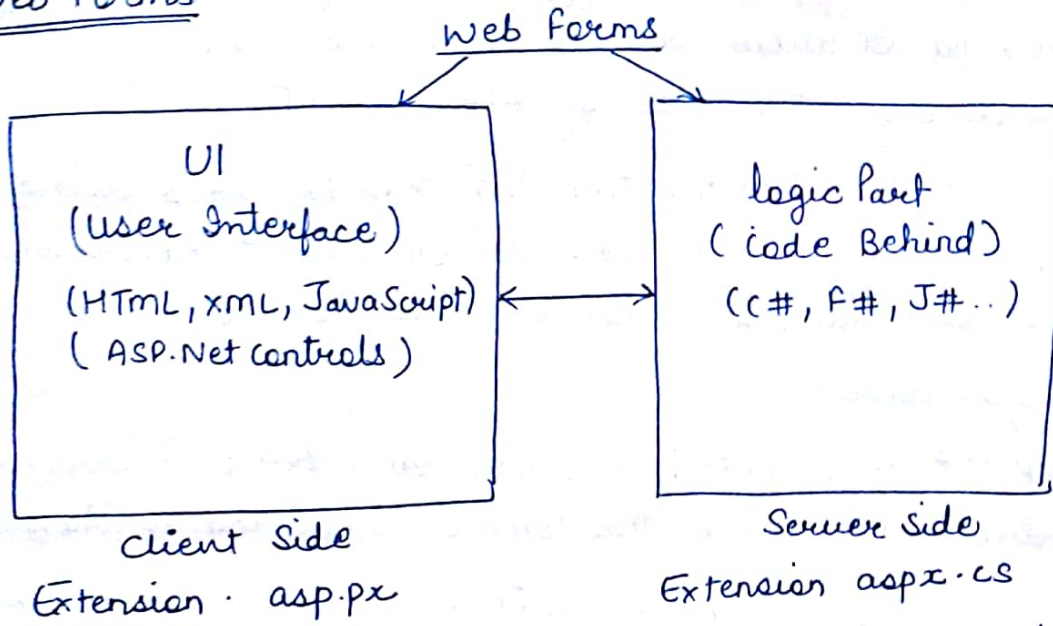 Web Forms
Web Forms
UI
(User Interface)
(HTML, XML, JavaScript)
(ASP.Net controls)
Client Side
Extension. asp.px
logic Part
(Code Behind)
(C#, F#, J#..)
Server Side
Extension aspx.cs